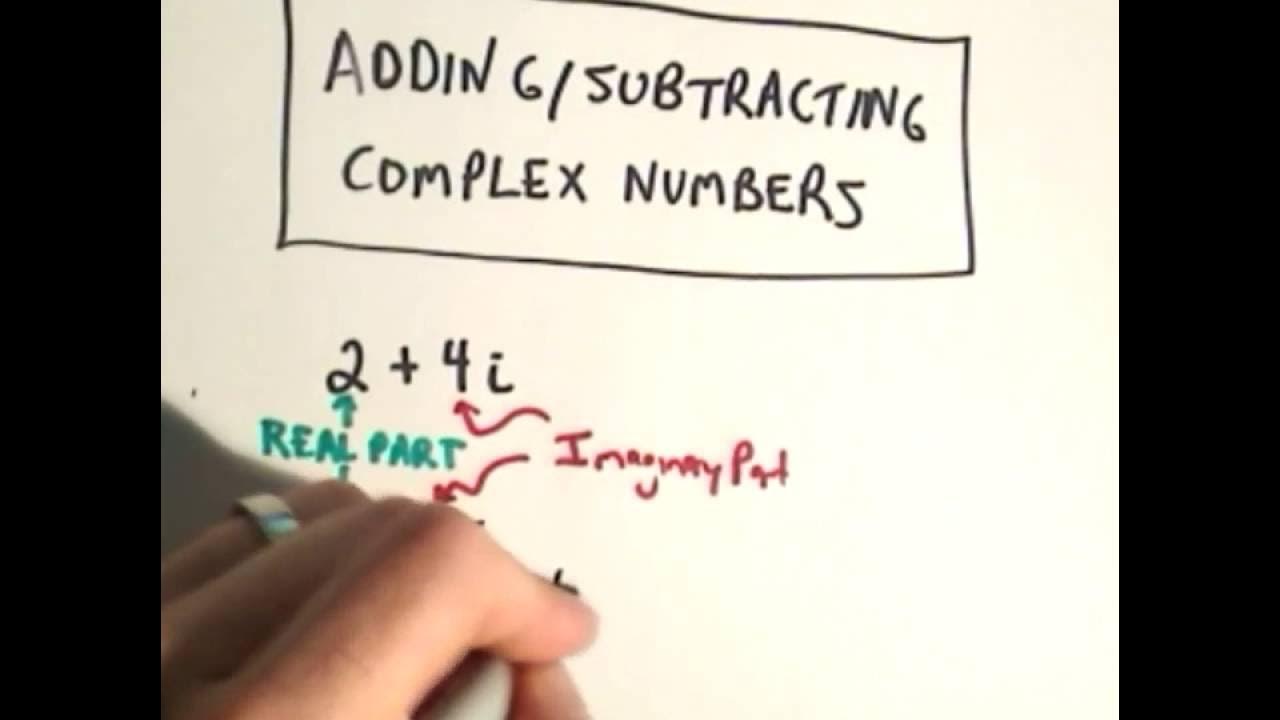 ADDING/SUBTRACTING
COMPLEX NUMBERS
2 + 4i
REAL PART
Imaginary Part